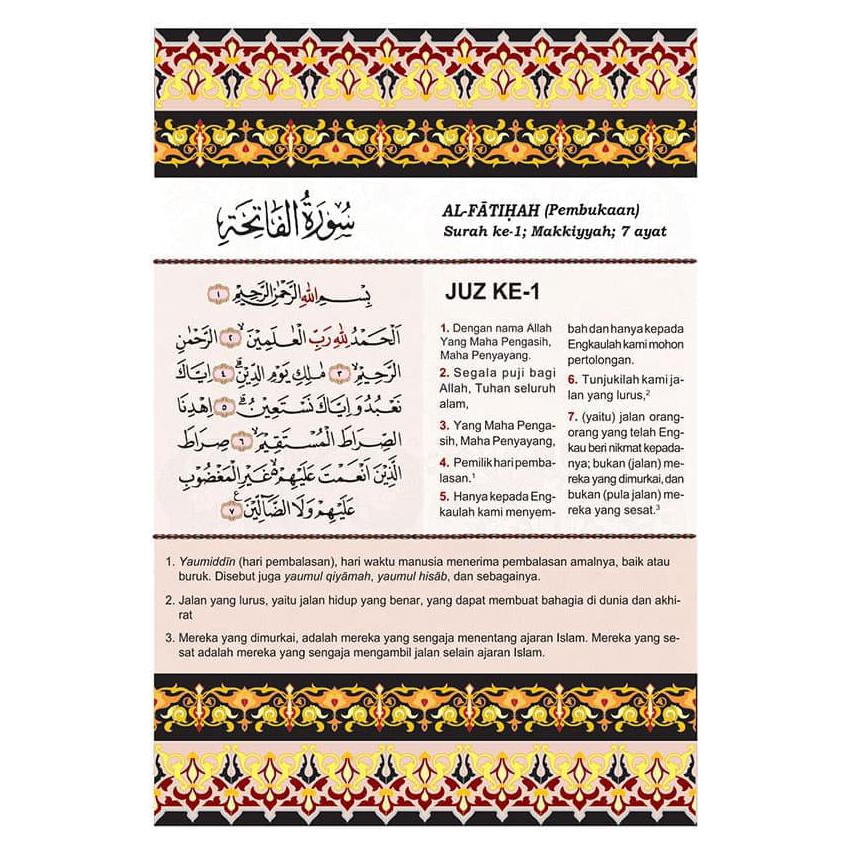 سُورَةُ الفَاتِحَةِ
AL-FĀTIḤAH (Pembukaan)
Surah ke-1; Makkiyyah; 7 ayat
بِسْمِ اللهِ الرَّحْمٰنِ الرَّحِيْمِ ١
اَلْحَمْدُ لِلّٰهِ رَبِّ الْعٰلَمِيْنَۙ ٢ الرَّحْمٰنِ
الرَّحِيْمِۙ ٣ مٰلِكِ يَوْمِ الدِّيْنِۗ ٤ اِيَّاكَ
نَعْبُدُ وَاِيَّاكَ نَسْتَعِيْنُۗ ٥ اِهْدِنَا
الصِّرَاطَ الْمُسْتَقِيْمَۙ ٦ صِرَاطَ
الَّذِيْنَ اَنْعَمْتَ عَلَيْهِمْ ەۙ غَيْرِ الْمَغْضُوْبِ
عَلَيْهِمْ وَلَا الضَّاۤلِّيْنَ ࣖ ٧
JUZ KE-1
1. Dengan nama Allah
Yang Maha Pengasih,
Maha Penyayang.
2. Segala puji bagi
Allah, Tuhan seluruh
alam,
3. Yang Maha Penga-
sih, Maha Penyayang,
4. Pemilik hari pemba-
lasan.¹
5. Hanya kepada Eng-
kaulah kami menyem-
bah dan hanya kepada
Engkaulah kami mohon
pertolongan.
6. Tunjukilah kami ja-
lan yang lurus,²
7. (yaitu) jalan orang-
orang yang telah Eng-
kau beri nikmat kepada-
nya; bukan (jalan) me-
reka yang dimurkai, dan
bukan (pula jalan) me-
reka yang sesat.³
1. Yaumiddīn (hari pembalasan), hari waktu manusia menerima pembalasan amalnya, baik atau
buruk. Disebut juga yaumul qiyāmah, yaumul hisāb, dan sebagainya.
2. Jalan yang lurus, yaitu jalan hidup yang benar, yang dapat membuat bahagia di dunia dan akhi-
rat
3. Mereka yang dimurkai, adalah mereka yang sengaja menentang ajaran Islam. Mereka yang se-
sat adalah mereka yang sengaja mengambil jalan selain ajaran Islam.